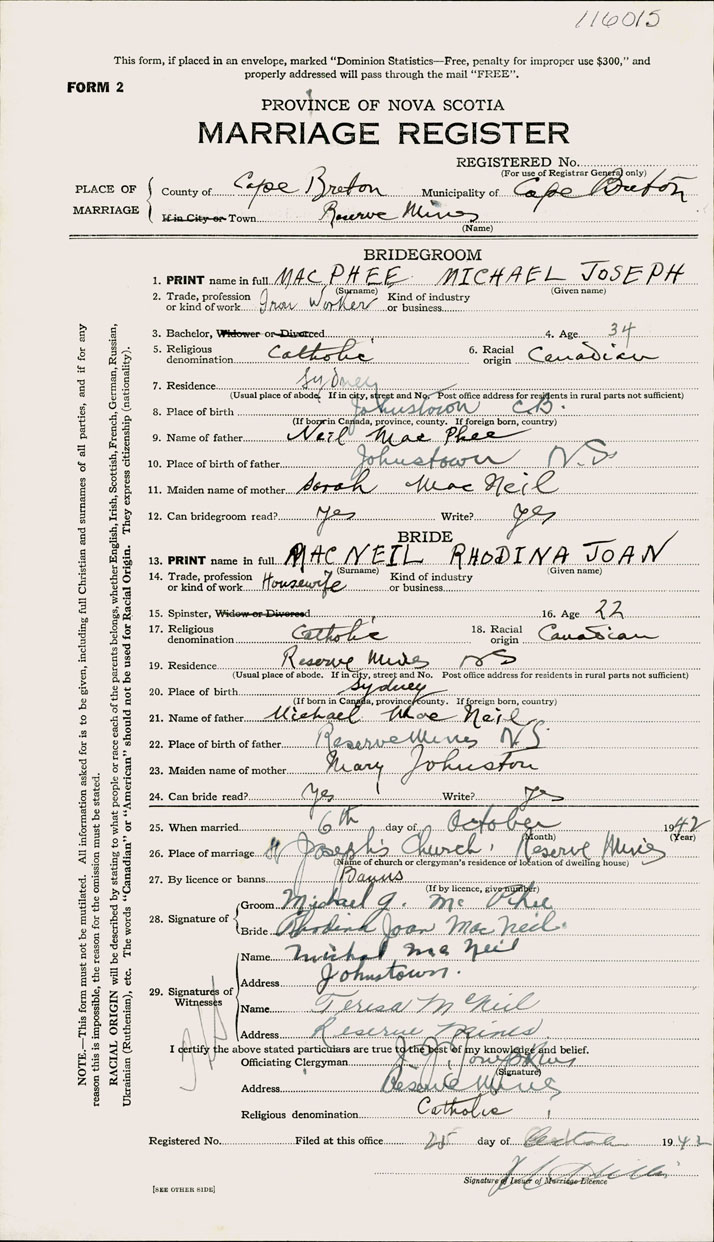 116015
This form, if placed in an envelope, marked "Dominion Statistics—Free, penalty for improper use $300," and
properly addressed will pass through the mail "FREE".
FORM 2
PROVINCE OF NOVA SCOTIA
MARRIAGE REGISTER
REGISTERED No.
(For use of Registrar General only)
PLACE OF MARRIAGE
County of Cape Breton Municipality of Cape Breton
If in City or Town Reserve Mines
(Name)
BRIDEGROOM
1. PRINT name in full MACPHEE MICHAEL JOSEPH
(Surname) (Given name)
2. Trade, profession or kind of work Iron Worker Kind of industry or business
3. Bachelor, Widower or Divorced 4. Age 34
5. Religious denomination Catholic 6. Racial origin Canadian
7. Residence Sydney
(Usual place of abode. If in city, street and No. Post office address for residents in rural parts not sufficient)
8. Place of birth Johnstown C.B.
(If born in Canada, province, county. If foreign born, country)
9. Name of father Neil Mac Phee
10. Place of birth of father Johnstown N.S
11. Maiden name of mother Sarah Mac Neil
12. Can bridegroom read? yes Write? yes
BRIDE
13. PRINT name in full MACNEIL RHODINA JOAN
(Surname) (Given name)
14. Trade, profession or kind of work Housewife Kind of industry or business
15. Spinster, Widow or Divorced 16. Age 22
17. Religious denomination Catholic 18. Racial origin Canadian
19. Residence Reserve Mines NS
(Usual place of abode. If in city, street and No. Post office address for residents in rural parts not sufficient)
20. Place of birth Sydney
(If born in Canada, province, county. If foreign born, country)
21. Name of father Michael Mac Neil
22. Place of birth of father Reserve Mines N.S.
23. Maiden name of mother Mary Johnston
24. Can bride read? Yes Write? Yes
25. When married 6th day of October 1942
(Month) (Year)
26. Place of marriage St Joseph's Church, Reserve Mines
(Name of church or clergyman's residence or location of dwelling house)
27. By licence or banns Banns
(If by licence, give number)
28. Signature of
Groom Michael J. Mc Phee
Bride Rhodina Joan Mac Neil
29. Signatures of Witnesses
Name Michal Mc Neil
Address Johnstown.
Name Teresa McNeil
Address Reserve Mines
I certify the above stated particulars are true to the best of my knowledge and belief.
Officiating Clergyman J. J. Tompkins
(Signature)
Address Reserve Mines
Religious denomination Catholic
Registered No. Filed at this office 25 day of 1942
Signature of Issuer of Marriage Licence
[SEE OTHER SIDE]
NOTE.—This form must not be mutilated. All information asked for is to be given, including full Christian and surnames of all parties, and if for any
reason this is impossible, the reason for the omission must be stated.
RACIAL ORIGIN will be described by stating to what people or race each of the parents belongs, whether English, Irish, Scottish, French, German, Russian,
Ukrainian (Ruthenian), etc. The words "Canadian" or "American" should not be used for Racial Origin. They express citizenship (nationality).